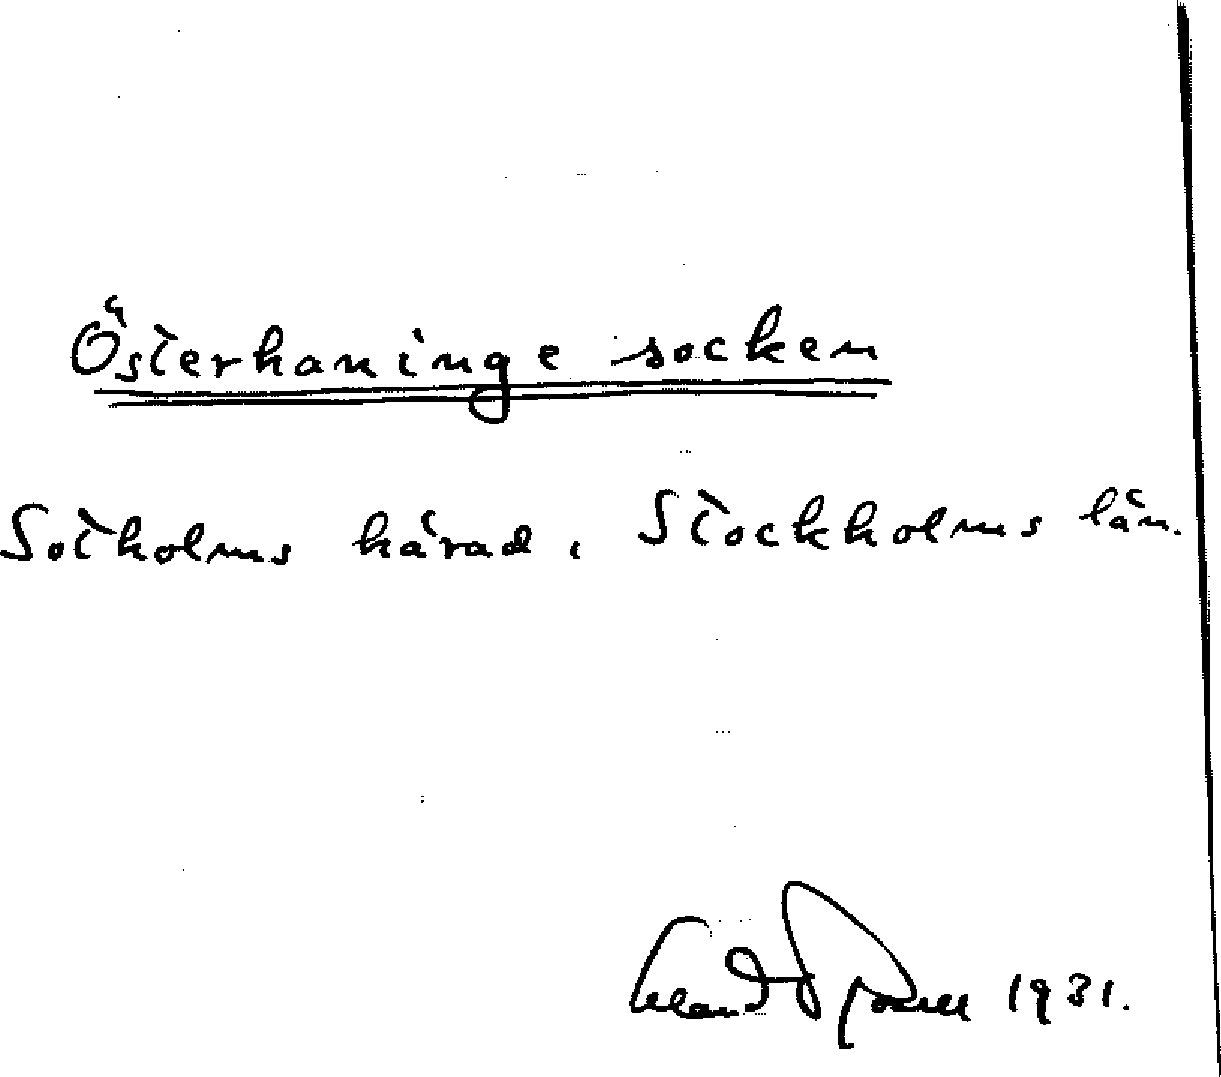 Österhaninge socken
Sotholms härad, Stockholms län.
1931.